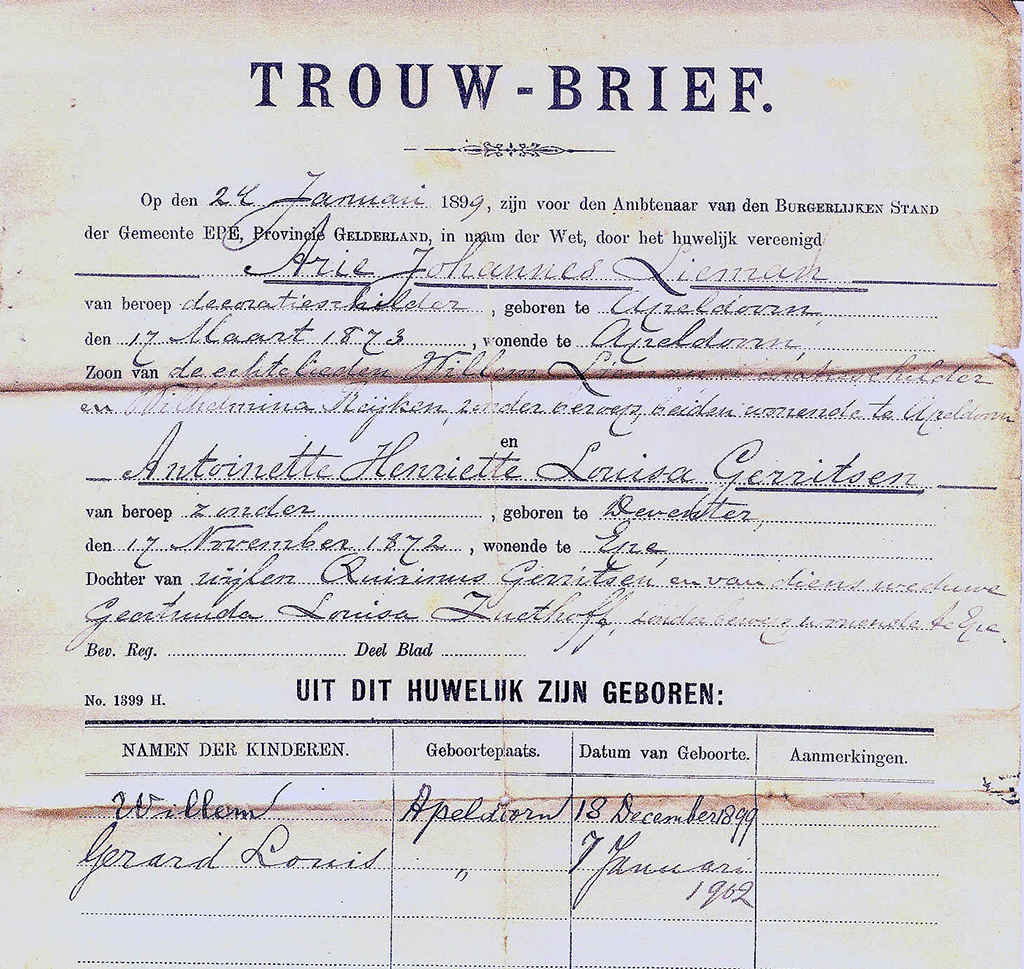 TROUW-BRIEF.
Op den 24 Januari 1899, zijn voor den Ambtenaar van den BURGERLIJKEN STAND
der Gemeente EPE, Provincie GELDERLAND, in naam der Wet, door het huwelijk vereenigd
Arie Johannes Lieman
van beroep decoratieschilder, geboren te Apeldoorn,
den 17 Maart 1873, wonende te Apeldoorn,
Zoon van de echtelieden Willem Lieman schilder
en Wilhelmina Kuijken, zonder beroep, beiden wonende te Apeldoorn
en
Antoinette Henriette Louisa Gerritsen
van beroep zonder, geboren te Deventer,
den 17 November 1872, wonende te Epe,
Dochter van wijlen Quirinus Gerritsen, en van diens weduwe
Geertruida Louisa, zonder beroep, wonende te Epe.
Bev. Reg. Deel Blad
No. 1399 H. UIT DIT HUWELIJK ZIJN GEBOREN:
NAMEN DER KINDEREN. Geboorteplaats. Datum van Geboorte. Aanmerkingen.
Willem Apeldoorn 13 December 1899
Gerard Louis „ 7 Januari
1902